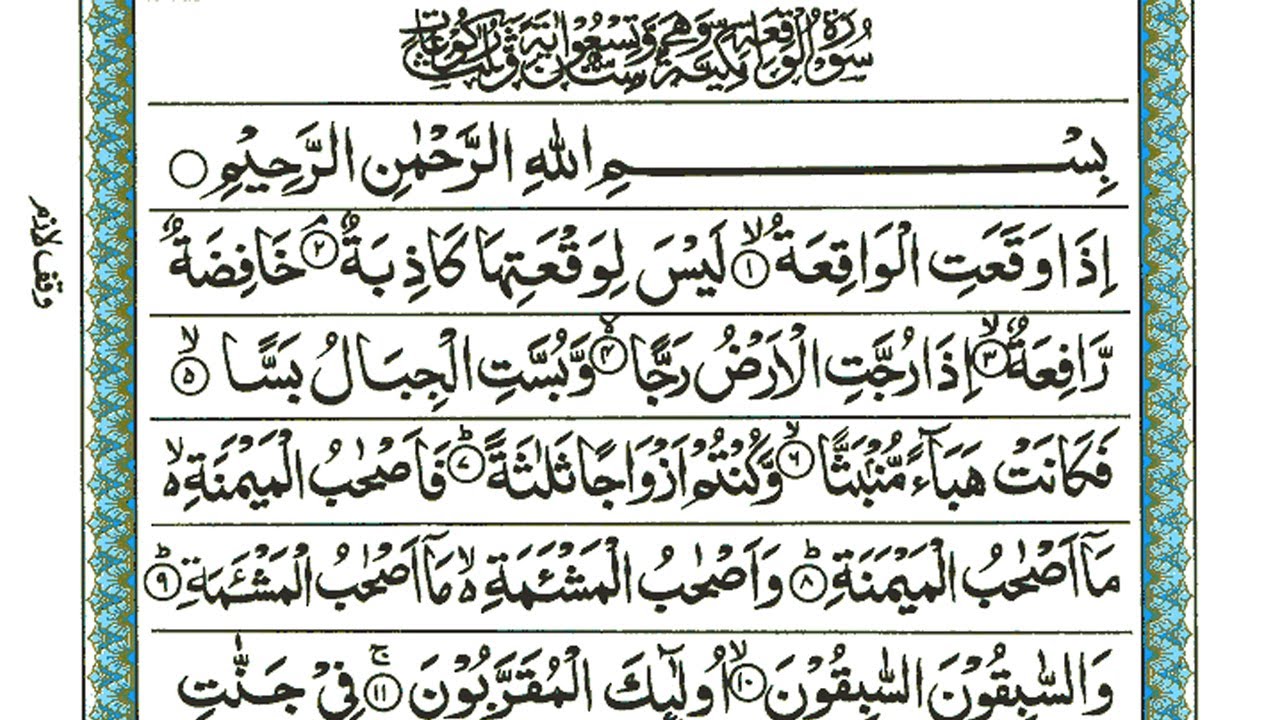 سُوْرَةُ الْوَاقِعَةِ مَكِّيَّةٌ وَّهِيَ سِتٌّ وَّتِسْعُوْنَ اٰيَةً وَّثَلٰثُ رُكُوْعَاتٍ
بِسْمِ اللهِ الرَّحْمٰنِ الرَّحِيْمِ ○
اِذَا وَقَعَتِ الْوَاقِعَةُ ۙ﴿۱﴾ لَيْسَ لِوَقْعَتِهَا كَاذِبَةٌ ۘ﴿۲﴾ خَافِضَةٌ
رَّافِعَةٌ ۙ﴿۳﴾ اِذَا رُجَّتِ الْاَرْضُ رَجًّا ۙ﴿۴﴾ وَّبُسَّتِ الْجِبَالُ بَسًّا ۙ﴿۵﴾
فَكَانَتْ هَبَآءً مُّنْۢبَثًّا ۙ﴿۶﴾ وَّكُنْتُمْ اَزْوَاجًا ثَلٰثَةً ؕ﴿۷﴾ فَاَصْحٰبُ الْمَيْمَنَةِ ۙ
مَاۤ اَصْحٰبُ الْمَيْمَنَةِ ؕ﴿۸﴾ وَاَصْحٰبُ الْمَشْـَٔمَةِ ۙ مَاۤ اَصْحٰبُ الْمَشْـَٔمَةِ ؕ﴿۹﴾
وَالسّٰبِقُوْنَ السّٰبِقُوْنَ ۙ﴿۱۰﴾ اُولٰٓئِكَ الْمُقَرَّبُوْنَ ۚ﴿۱۱﴾ فِيْ جَنّٰتِ
وقف لازم